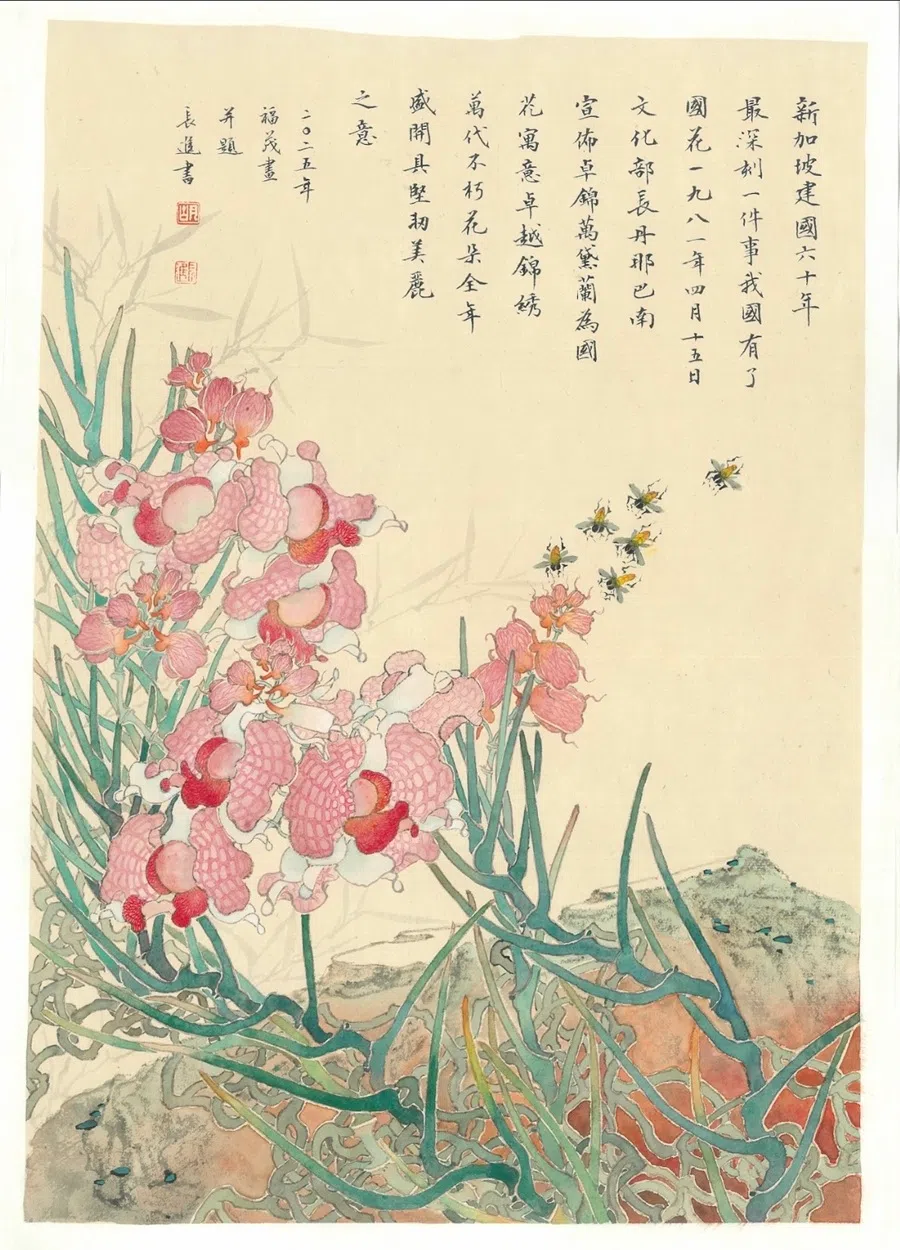 新加坡建國六十年
最深刻一件事我國有了
國花一九八一年四月十五日
文化部長丹那巴南
宣佈卓錦萬黛蘭為國
花寓意卓越錦綉
萬代不朽花朵全年
盛開具堅韧美麗
之意
二〇二五年
福茂畫
并題
長進書